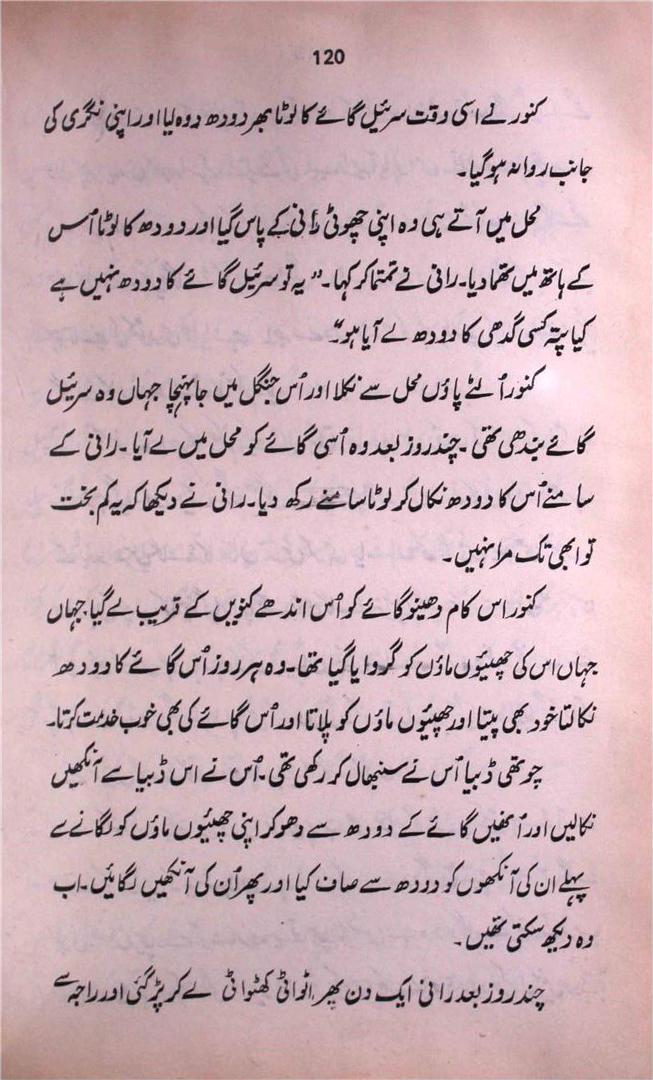 120
کنور نے اسی وقت سرئیل گائے کا لوٹا بھر دودھ دوہ لیا اور اپنی نگری کی
جانب روانہ ہو گیا۔
محل میں آتے ہی وہ اپنی چھوٹی رانی کے پاس گیا اور دودھ کا لوٹا اُس
کے ہاتھ میں تھما دیا۔ رانی نے تمتما کر کہا۔ "یہ تو سرئیل گائے کا دودھ نہیں ہے
کیا پتہ کسی گدھی کا دودھ لے آیا ہو"۔
کنور اُلٹے پاؤں محل سے نکلا اور اُس جنگل میں جا پہنچا جہاں وہ سرئیل
گائے بندھی تھی۔ چند روز بعد وہ اُسی گائے کو محل میں لے آیا۔ رانی کے
سامنے اُس کا دودھ نکال کر لوٹا سامنے رکھ دیا۔ رانی نے دیکھا کہ یہ کم بخت
تو ابھی تک مرا نہیں۔
کنور اس کام دھینو گائے کو اُس اندھے کنویں کے قریب لے گیا جہاں
جہاں اس کی چھیئوں ماؤں کو گروایا گیا تھا۔ وہ ہر روز اُس گائے کا دودھ
نکالتا خود بھی پیتا اور چھیئوں ماؤں کو پلاتا اور اُس گائے کی بھی خوب خدمت کرتا۔
چوتھی ڈبیا اُس نے سنبھال کر رکھی تھی۔ اُس نے اس ڈبیا سے آنکھیں
نکالیں اور اُنھیں گائے کے دودھ سے دھو کر اپنی چھیئوں ماؤں کو لگانے سے
پہلے ان کی آنکھوں کو دودھ سے صاف کیا اور پھر اُن کی آنکھیں لگائیں۔ اب
وہ دیکھ سکتی تھیں۔
چند روز بعد رانی ایک دن پھر اٹوائی کھٹوائی لے کر پڑ گئی اور راجہ سے